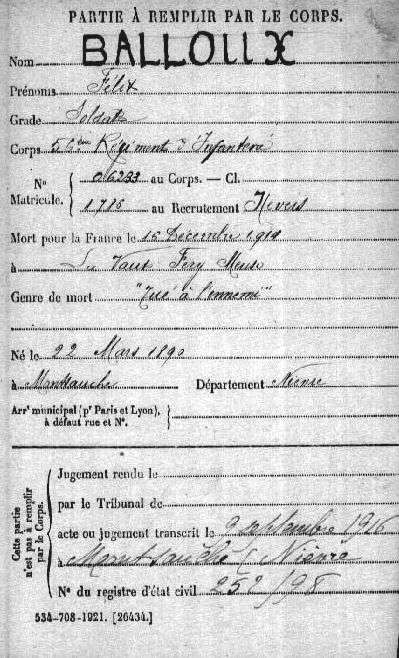 PARTIE À REMPLIR PAR LE CORPS.
Nom BALLOUX
Prénoms Félix
Grade Soldat
Corps 56ème Régiment d'Infanterie
Nº 06233 au Corps. — Cl.
Matricule. 1715 au Recrutement Nevers
Mort pour la France le 15 Décembre
à Meuse
Genre de mort "Tué à l'ennemi"
Né le 22 Mars 1890
à Montsauche Département Nièvre
Arrᵗ municipal (pʳ Paris et Lyon),
à défaut rue et Nº.
Cette partie
n'est pas à remplir
par le Corps.
Jugement rendu le
par le Tribunal de
acte ou jugement transcrit le 9 septembre 1916
à Montsauche (Nièvre
Nº du registre d'état civil 252/98
534-708-1921. [26434.]